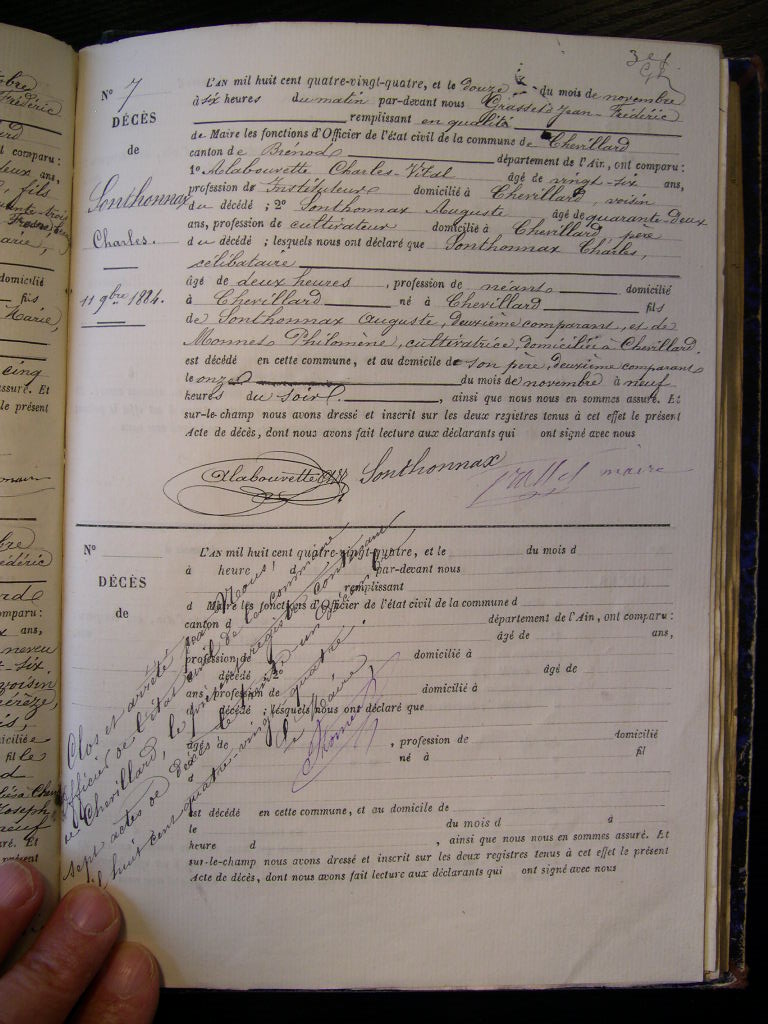 N° 7
DÉCÈS
de
Sonthonnax
Charles.
11 9bre 1884.
L'AN mil huit cent quatre-vingt-quatre, et le douze du mois de novembre
à six heures du matin par-devant nous Grasset Jean-Frédéric
remplissant en qualité
de Maire les fonctions d'Officier de l'état civil de la commune de Chevillard
canton de Brénod département de l'Ain, ont comparu :
1° Alabouvette Charles-Vital âgé de vingt-six ans,
profession de Instituteur domicilié à Chevillard, voisin
du décédé ; 2° Sonthonnax Auguste âgé de quarante-deux
ans, profession de cultivateur domicilié à Chevillard père
du décédé ; lesquels nous ont déclaré que Sonthonnax Charles,
célibataire
âgé de deux heures, profession de néant domicilié
à Chevillard né à Chevillard fils
de Sonthonnax Auguste, deuxième comparant, et de
Monnet Philomène, cultivatrice, domiciliée à Chevillard.
est décédé en cette commune, et au domicile de son père, deuxième comparant
le onze du mois de novembre à neuf
heures du soir, ainsi que nous nous en sommes assuré. Et
sur-le-champ nous avons dressé et inscrit sur les deux registres tenus à cet effet le présent
Acte de décès, dont nous avons fait lecture aux déclarants qui ont signé avec nous
Alabouvette Sonthonnax Grasset maire
N°
DÉCÈS
de
L'AN mil huit cent quatre-vingt-quatre, et le du mois d
à heure d par-devant nous
remplissant
d Maire les fonctions d'Officier de l'état civil de la commune d
canton d département de l'Ain, ont comparu :
âgé de ans,
profession de domicilié à
décédé ; 2° âgé de
ans, profession de domicilié à
décédé ; lesquels nous ont déclaré que
âgés de , profession de domicilié
à né à fil
est décédé en cette commune, et au domicile de
le du mois d à
heure d , ainsi que nous nous en sommes assuré. Et
sur-le-champ nous avons dressé et inscrit sur les deux registres tenus à cet effet le présent
Acte de décès, dont nous avons fait lecture aux déclarants qui ont signé avec nous
Clos et arrêté par Nous,
Officier de l'état civil de la commune
de Chevillard, le présent registre contenant
sept actes de décès le trente un décembre
mil huit cent quatre-vingt quatre.
Le Maire,